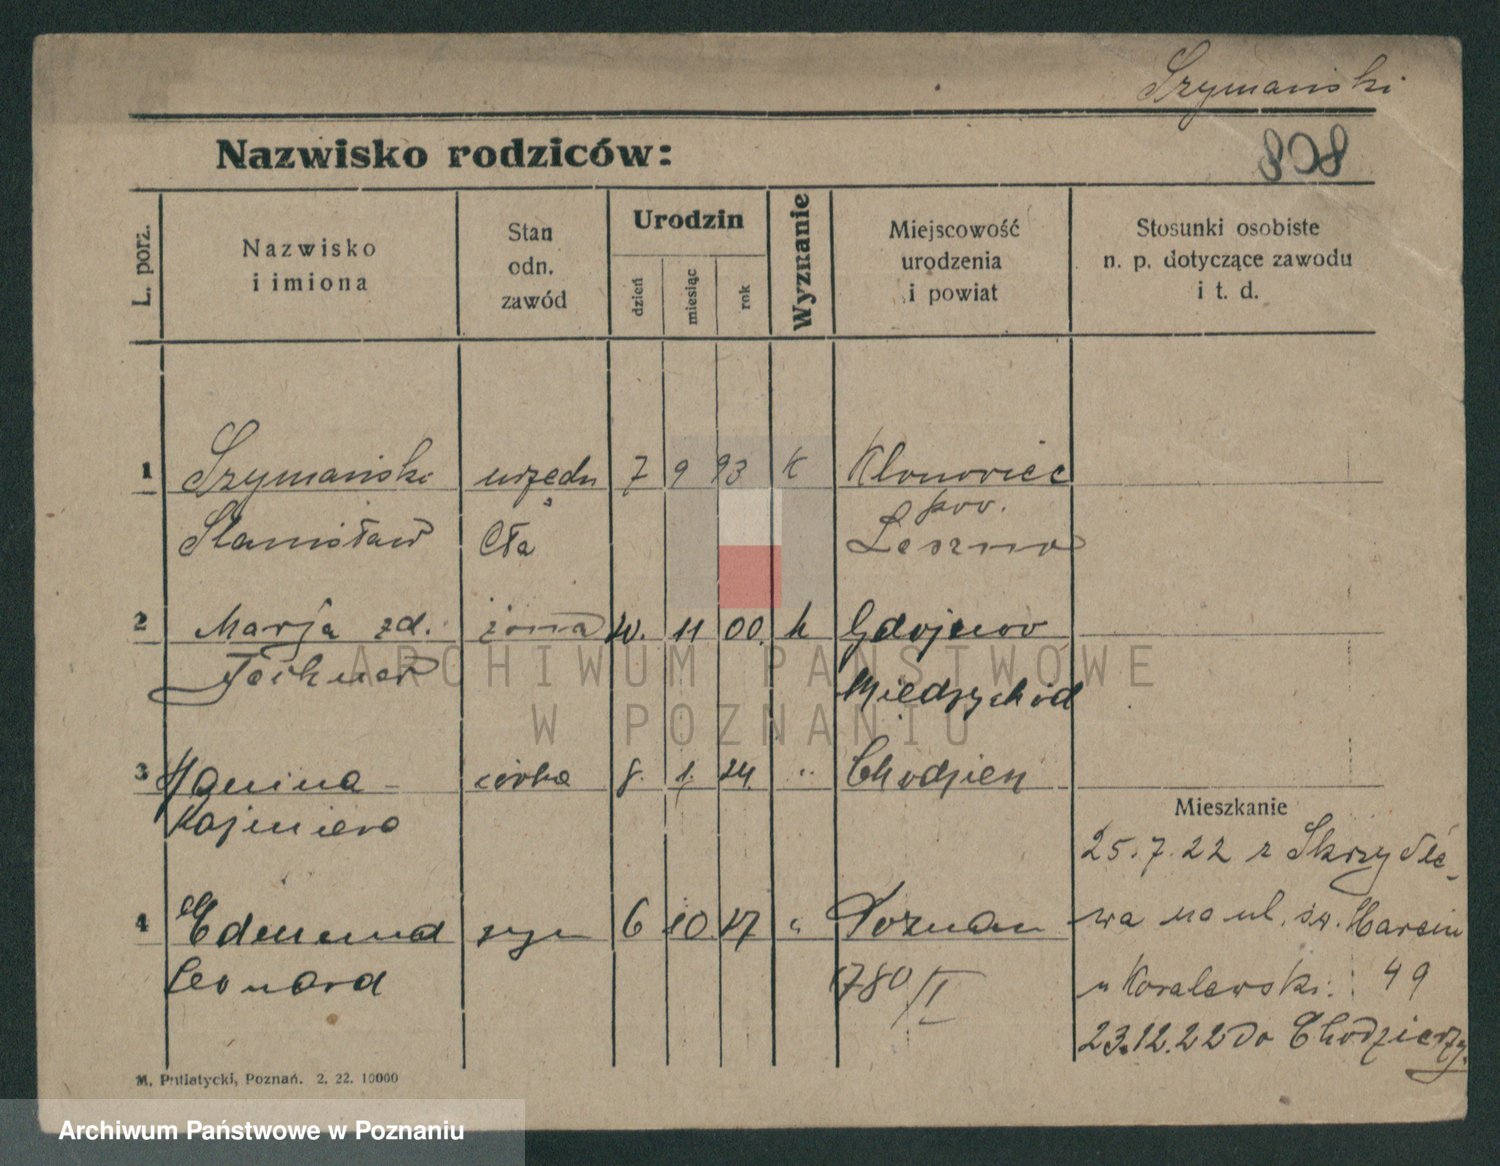 Szymański
Nazwisko rodziców:
808
L. porz.
Nazwisko
i imiona
Stan
odn.
zawód
Urodzin
dzień
miesiąc
rok
Wyznanie
Miejscowość
urodzenia
i powiat
Stosunki osobiste
n. p. dotyczące zawodu
i t. d.
1 Szymański urzędn 7 9 93 K Klonowiec
pow.
Stanisław Cła Leszno
2 Marja zd. żona 20. 11 00. k
Międzychód
3 Janina córka 8. 1. 24. " Chodzież
Kazimiera
Mieszkanie
25.7.22 z Skrzydle-
4 Edmund syn 6 10. 27 " Poznań
wa na ul. św. Marcin
Leonard 1780/I
u Koralewski. 49
23.12.22 do Chodzierzy.
M. Putiatycki, Poznań. 2. 22. 10000
ARCHIWUM PAŃSTWOWE
W POZNANIU
Archiwum Państwowe w Poznaniu